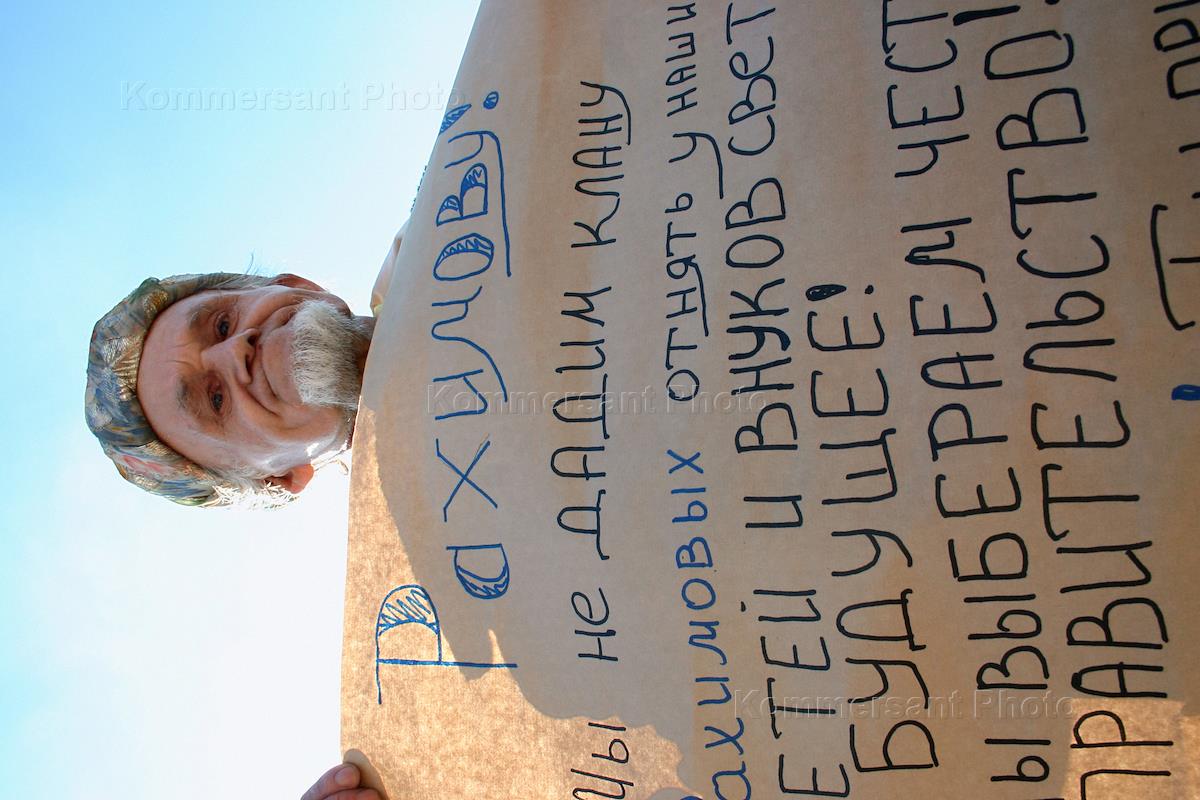 Рахимову!
мы не дадим клану
Рахимовых отнять у наши
ЕТЕЙ И ВНУКОВ СВЕТ
БУДУЩЕЕ!
Ы ВЫБЕРАЕМ ЧЕСТ
ПРАВИТЕЛЬСТВО!
Kommersant Photo
Kommersant Photo
Kommersant Photo